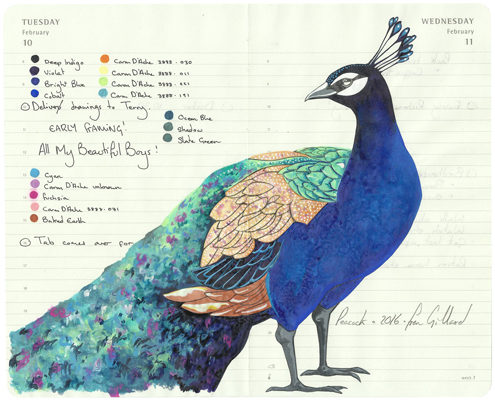 TUESDAY
February
10
WEDNESDAY
February
11
Deep Indigo
Violet
Bright Blue
Cobalt
Caran D'Ache 3888 · 030
Caran D'Ache 3888 · 011
Caran D'Ache
Caran D'Ache 3888 · 171
Deliver drawings to Terry.
EARLY FRAMING!
All My Beautiful Boys!
Ocean Blue
Shadow
Slate Green
Cyan
Caran D'Ache unknown
Fuchsia
Caran D'Ache 3888 · 081
Baked Earth
Tab comes over for
Peacock · 2016 ·